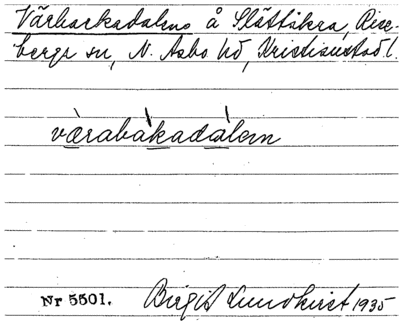 Värbackadalens å Slättåkra, Rise-
berga sn, N. Åsbo hd, Kristianstads l.
värabàkadàlem
Nr 5501. Birgit Lundkvist 1935